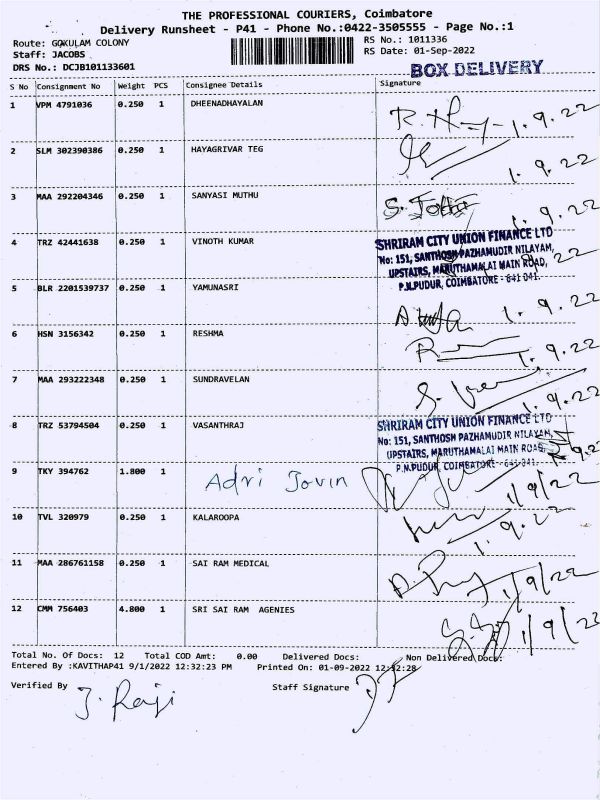 THE PROFESSIONAL COURIERS, Coimbatore
Delivery Runsheet - P41 - Phone No.:0422-3505555 - Page No.:1
Route: GOKULAM COLONY
RS No.: 1011336
Staff: JACOBS
RS Date: 01-Sep-2022
DRS No.: DCJB101133601
BOX DELIVERY
S No Consignment No Weight PCS Consignee Details Signature
1 VPM 4791036 0.250 1 DHEENADHAYALAN
1.9.22
2 SLM 302390386 0.250 1 HAYAGRIVAR TEG
1.9.22
3 MAA 292204346 0.250 1 SANYASI MUTHU
1.9.22
4 TRZ 42441638 0.250 1 VINOTH KUMAR
SHRIRAM CITY UNION FINANCE LTD
No: 151, SANTHOSH PAZHAMUDIR NILAYAM,
UPSTAIRS, MARUTHAMALAI MAIN ROAD,
P.N.PUDUR, COIMBATORE - 641 041.
5 BLR 2201539737 0.250 1 YAMUNASRI
1.9.22
6 HSN 3156342 0.250 1 RESHMA
1.9.22
7 MAA 293222348 0.250 1 SUNDRAVELAN
1.9.22
8 TRZ 53794504 0.250 1 VASANTHRAJ
SHRIRAM CITY UNION FINANCE LTD
No: 151, SANTHOSH PAZHAMUDIR NILAYAM,
UPSTAIRS, MARUTHAMALAI MAIN ROAD,
P.N.PUDUR, COIMBATORE - 641 041.
9 TKY 394762 1.800 1 Adri Jovin
1/9/22
10 TVL 320979 0.250 1 KALAROOPA
1.9.22
11 MAA 286761158 0.250 1 SAI RAM MEDICAL
1/9/22
12 CMM 756403 4.800 1 SRI SAI RAM AGENIES
1/9/22
Total No. Of Docs: 12 Total COD Amt: 0.00 Delivered Docs: Non Delivered Docs:
Entered By :KAVITHAP41 9/1/2022 12:32:23 PM Printed On: 01-09-2022 12:32:28
Verified By J. Raji Staff Signature